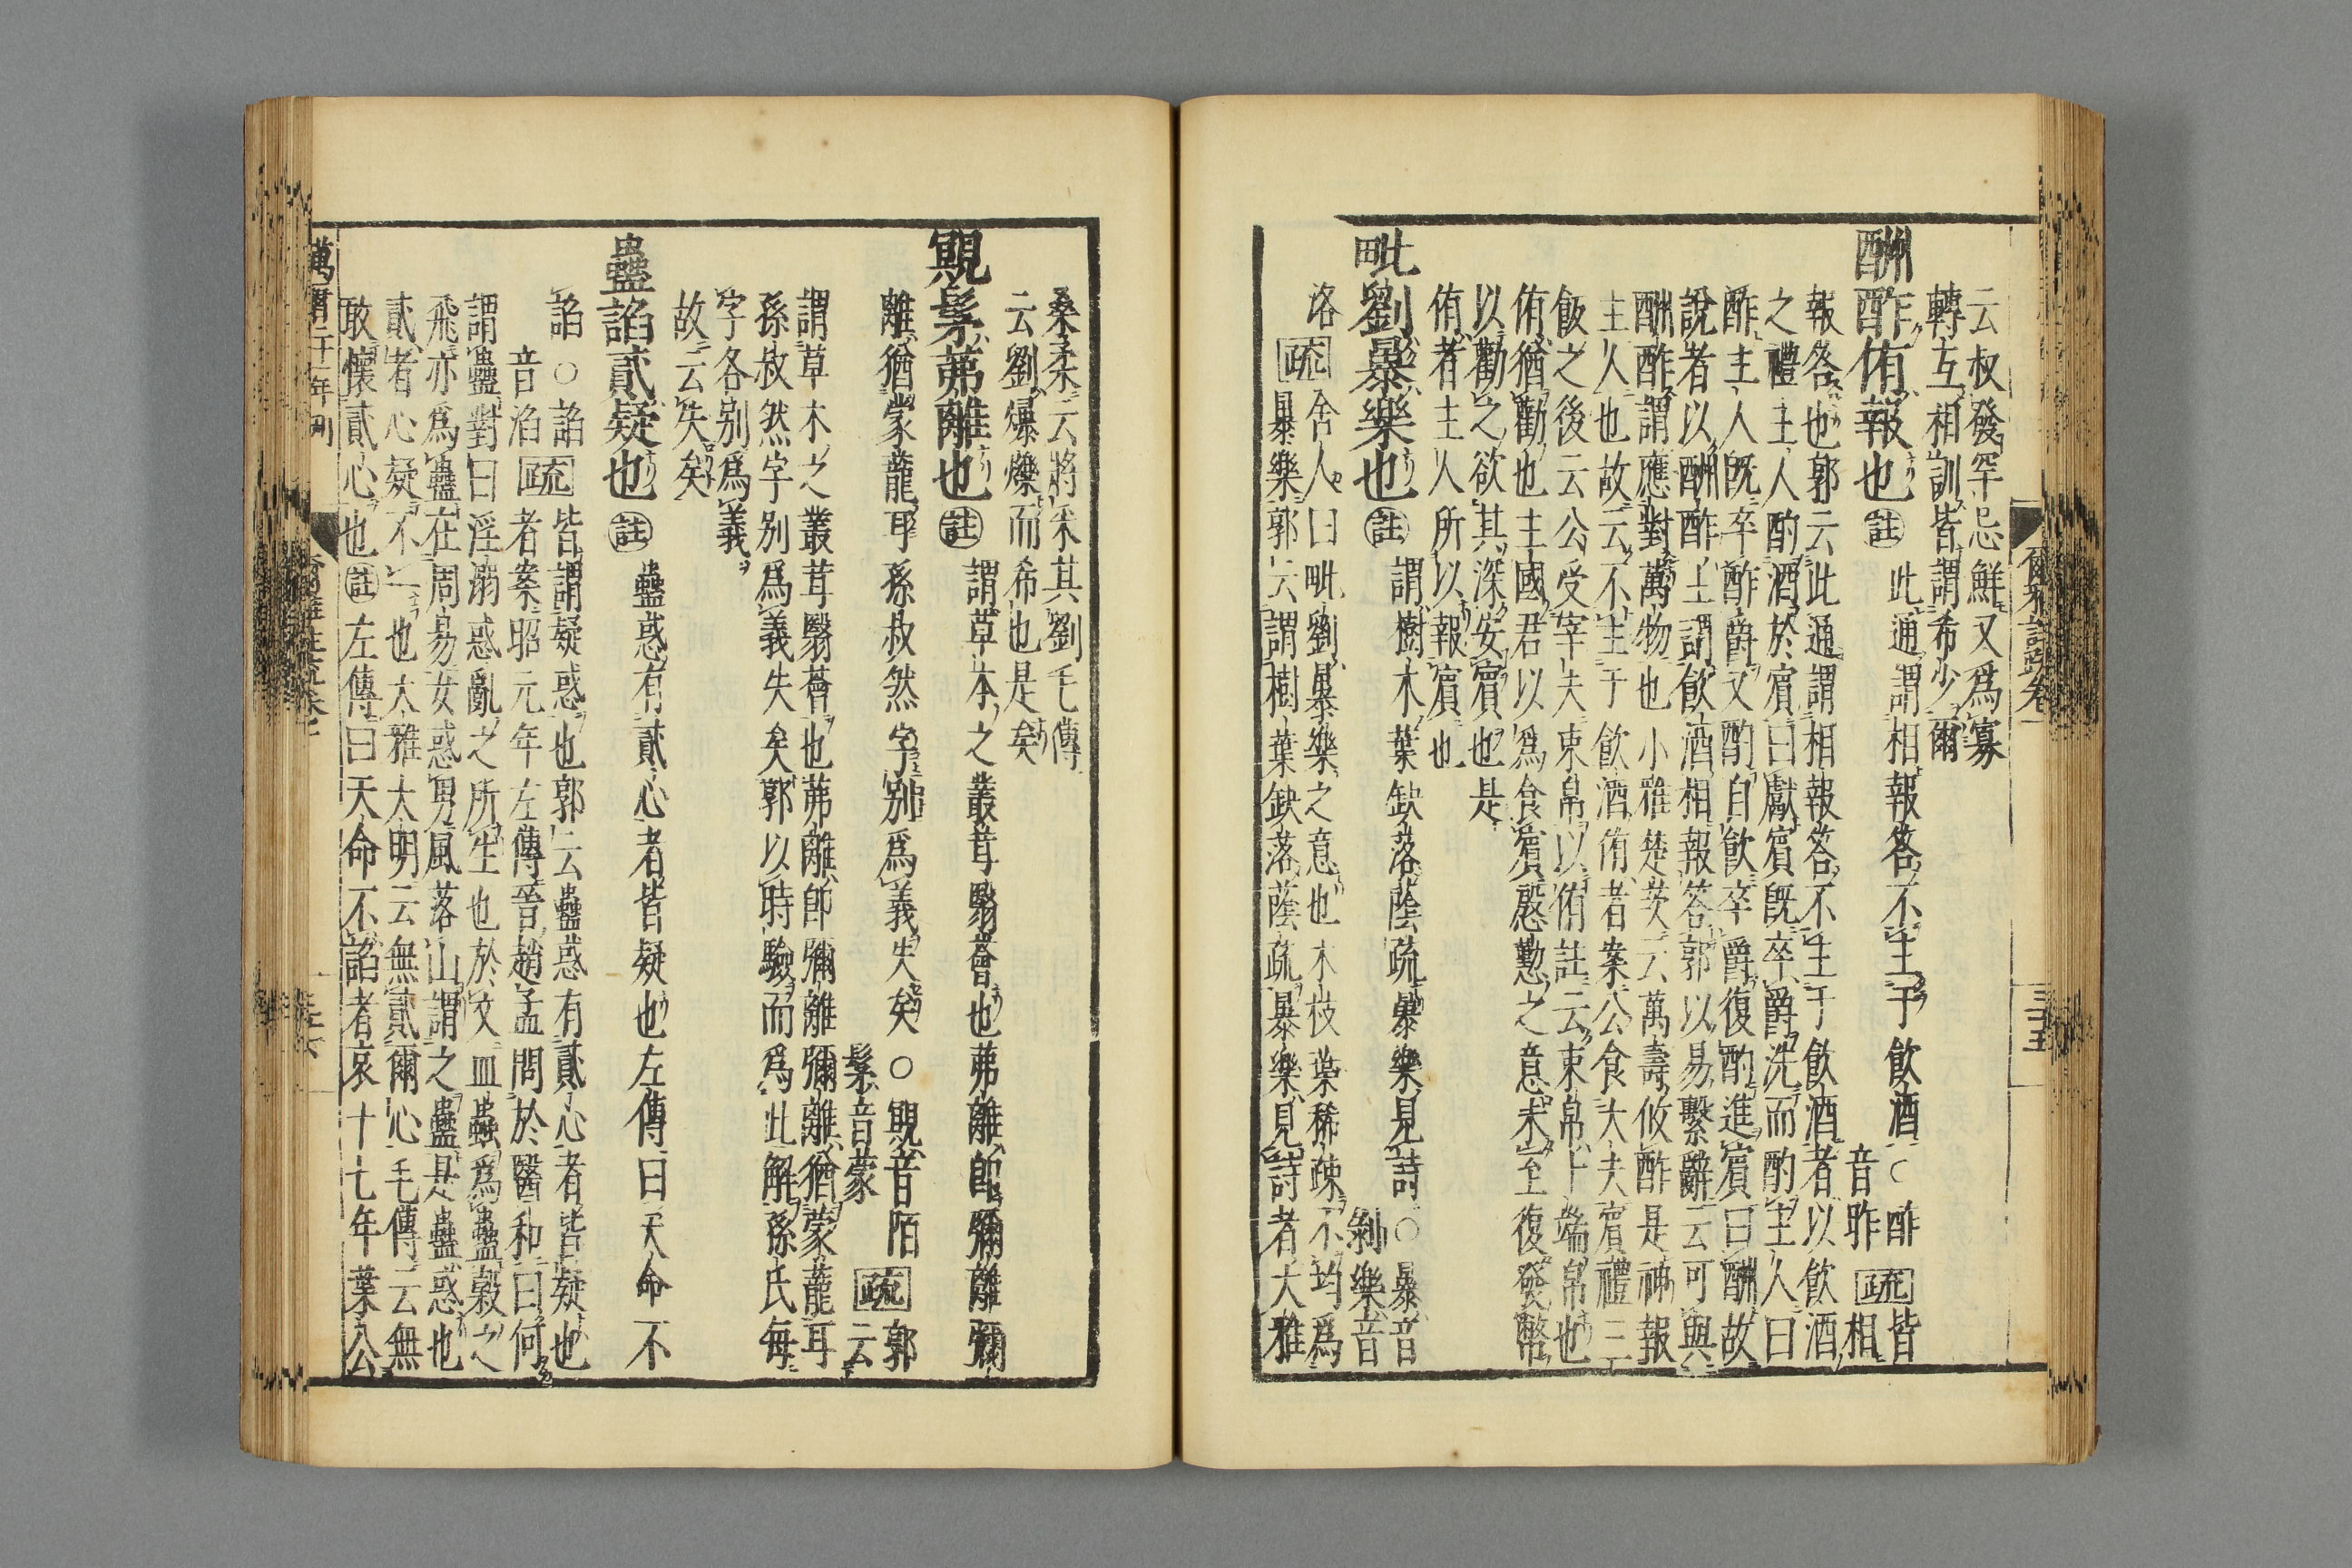 云叔發罕忌鮮又爲寡
轉互相訓皆謂希少爾
酬酢侑報也 註 此通謂相報答不主于飲酒○酢
音昨 疏 皆相
報答也郭云此通謂相報答不主于飲酒者以飲酒
之禮主人酌酒於賓曰獻賓既卒爵洗而酌主人曰
酢主人既卒酢爵又酌自飲卒爵復酌進賓曰酬故
說者以酬酢主謂飲酒相報答郭以易繫辭云可與
酬酢謂應對萬物也小雅楚茨云萬壽攸酢是神報
主人也故云不主于飲酒侑者案公食大夫賓禮三
飯之後云公受宰夫束帛以侑註云束帛十端帛也
侑猶勸也主國君以爲食賓慇懃之意未至復發幣
以勸之欲其深安賓也是
侑者主人所以報賓也
毗劉暴樂也 註 謂樹木葉缺落蔭疏暴樂見詩○暴音
剝樂音
洛 疏 舍人曰毗劉暴樂之意也木枝葉稀疎不均爲
暴樂郭云謂樹葉缺落蔭疏暴樂見詩者大雅
爾雅註疏卷一
三十五
桑柔云將采其劉毛傳
云劉爆爍而希也是矣
覭髳茀離也 註 謂草木之叢茸翳薈也茀離卽彌離彌
離猶蒙蘢耳孫叔然字別爲義失矣○覭音陌
髳音蒙 疏 郭云
謂草木之叢茸翳薈也茀離卽彌離彌離猶蒙蘢耳
孫叔然字別爲義失矣郭以時驗而爲此解孫氏每
字各別爲義
故云失矣
蠱諂貳疑也 註 蠱惑有貳心者皆疑也左傳曰天命不
諂○諂
音滔 疏 皆謂疑惑也郭云蠱惑有貳心者皆疑也
者案昭元年左傳晉趙孟問於醫和曰何
謂蠱對曰淫溺惑亂之所生也於文皿蟲爲蠱穀之
飛亦爲蠱在周易女惑男風落山謂之蠱是蠱惑也
貳者心疑不一也大雅大明云無貳爾心毛傳云無
敢懷貳心也 註 左傳曰天命不諂者哀十七年葉公
萬曆二十一年刊
爾雅註疏卷一
三十六